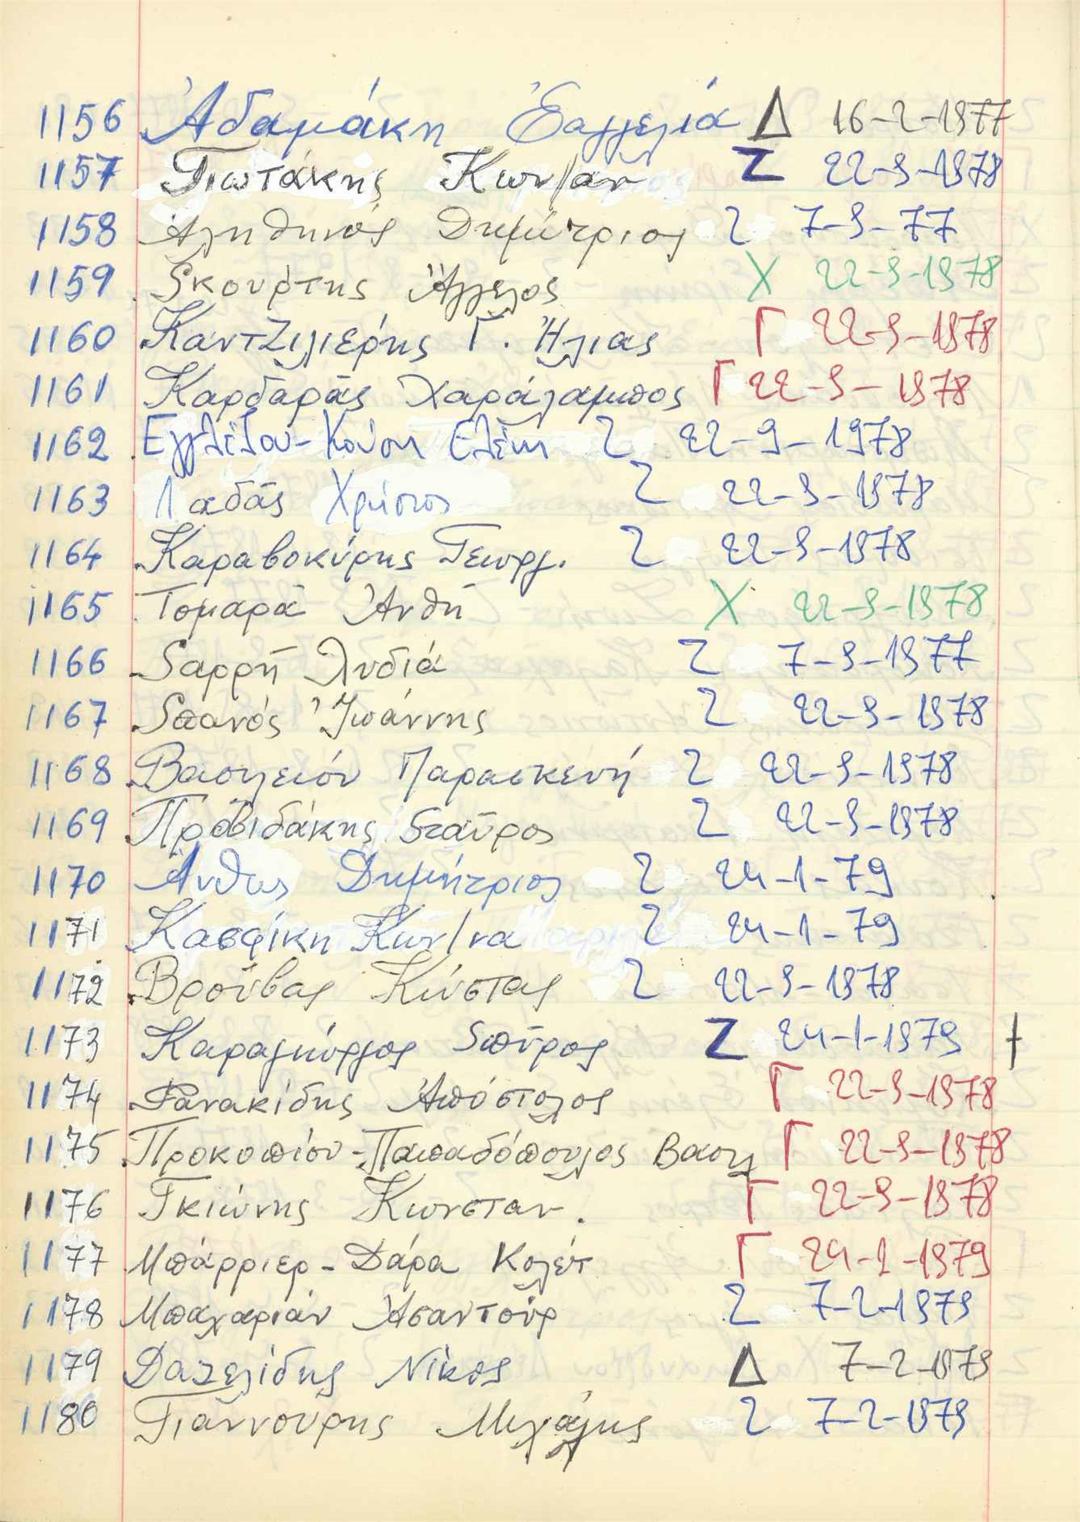 1156 Ἀδαμάκη Εὐαγγελία Δ 16-2-1977
1157 Γιωτάκης Κων/αν Ζ 22-9-1978
1158 Ἀληθινός Δημήτριος Ζ 7-9-77
1159 Σκούρτης Ἄγγελος Χ 22-9-1978
1160 Καντζιλιέρης Γ. Ἠλίας Γ 22-9-1978
1161 Καρδαρᾶς Χαράλαμπος Γ 22-9-1978
1162 Ελένη Ζ 22-9-1978
1163 Λαδᾶς Χρίστος Ζ 22-9-1978
1164 Καραβοκύρης Γεωργ. Ζ 22-9-1978
1165 Τομαρᾶ Ἀνθή Χ 22-9-1978
1166 Σαρρῆ Λυδία Ζ 7-9-1977
1167 Σπανός Ἰωάννης Ζ 22-9-1978
1168 Βασιλείου Παρασκευή Ζ 22-9-1978
1169 Προβιδάκης Σταῦρος Ζ 22-9-1978
1170 Ἄνθης Δημήτριος Ζ 24-1-79
1171 Κασφίκη Κων/να Ζ 24-1-79
1172 Βρούβας Κώστας Ζ 22-9-1978
1173 Καραγιώργος Σπῦρος Ζ 24-1-1979 †
1174 Φανακίδης Ἀπόστολος Γ 22-9-1978
1175 Προκοπίου-Παπαδόπουλος Βασιλ Γ 22-9-1978
1176 Γκιώνης Κωνσταν. Γ 22-9-1978
1177 Μπάρριερ-Δάρα Κολέτ Γ 24-1-1979
1178 Μπαχαριάν Ἀσαντούρ Ζ 7-2-1979
1179 Δαζελίδης Νίκος Δ 7-2-1979
1180 Γιαννούρης Μιχάλης Ζ 7-2-1979